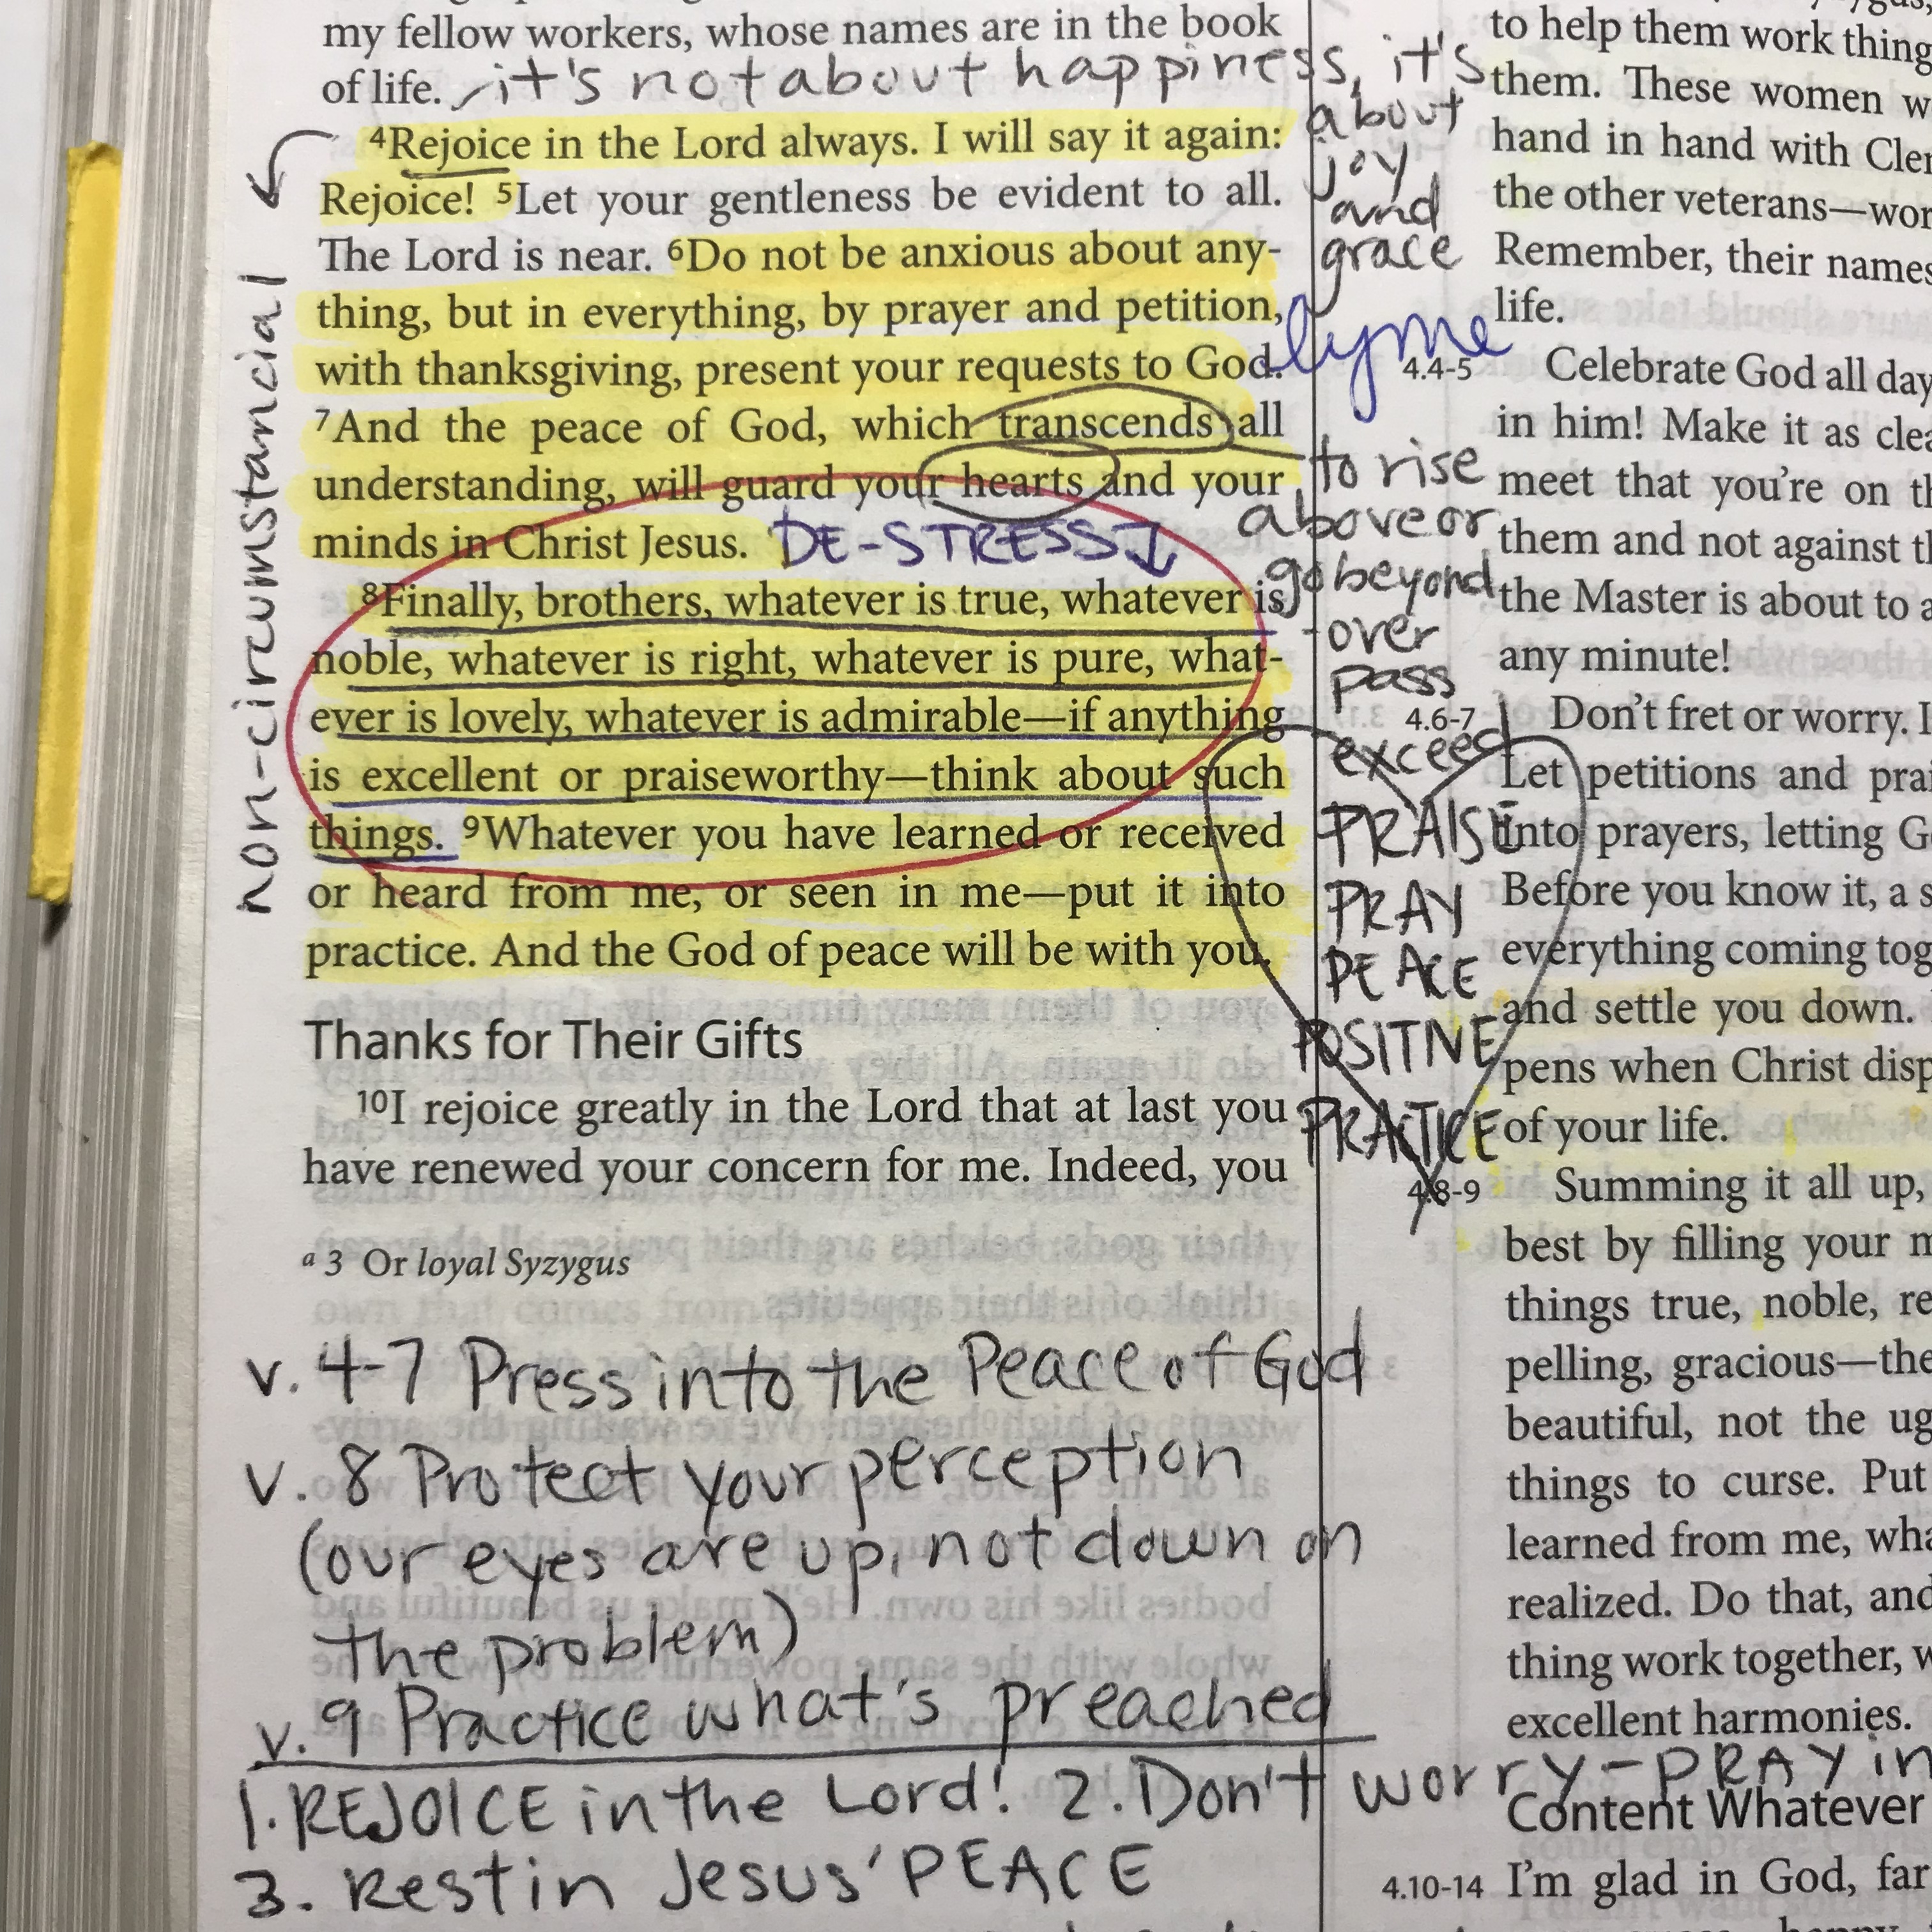 my fellow workers, whose names are in the book
of life.
it's not about happiness, it's
about
joy
and
grace
⁴Rejoice in the Lord always. I will say it again:
Rejoice! ⁵Let your gentleness be evident to all.
The Lord is near. ⁶Do not be anxious about any-
thing, but in everything, by prayer and petition,
with thanksgiving, present your requests to God.
⁷And the peace of God, which transcends all
understanding, will guard your hearts and your
minds in Christ Jesus.
DE-STRESS
⁸Finally, brothers, whatever is true, whatever is
noble, whatever is right, whatever is pure, what-
ever is lovely, whatever is admirable—if anything
is excellent or praiseworthy—think about such
things. ⁹Whatever you have learned or received
or heard from me, or seen in me—put it into
practice. And the God of peace will be with you.
non-circumstancial
Thanks for Their Gifts
¹⁰I rejoice greatly in the Lord that at last you
have renewed your concern for me. Indeed, you
a 3 Or loyal Syzygus
v. 4-7 Press into the Peace of God
v. 8 Protect your perception
(our eyes are up, not down on
the problem)
v. 9 Practice what's preached
1. REJOICE in the Lord! 2. Don't worry-PRAY in
3. Rest in Jesus' PEACE
lyme
to rise
above or
go beyond
-over
pass
exceed
PRAISE
PRAY
PEACE
POSITIVE
PRACTICE
to help them work thing
them. These women w
hand in hand with Cler
the other veterans—wor
Remember, their names
life.
4.4-5 Celebrate God all day
in him! Make it as clea
meet that you're on th
them and not against th
the Master is about to a
any minute!
4.6-7 Don't fret or worry. I
Let petitions and prai
into prayers, letting G
Before you know it, a s
everything coming tog
and settle you down.
pens when Christ disp
of your life.
4.8-9 Summing it all up,
best by filling your m
things true, noble, re
pelling, gracious—the
beautiful, not the ug
things to curse. Put
learned from me, wha
realized. Do that, and
thing work together, w
excellent harmonies.
Content Whatever
4.10-14 I'm glad in God, far